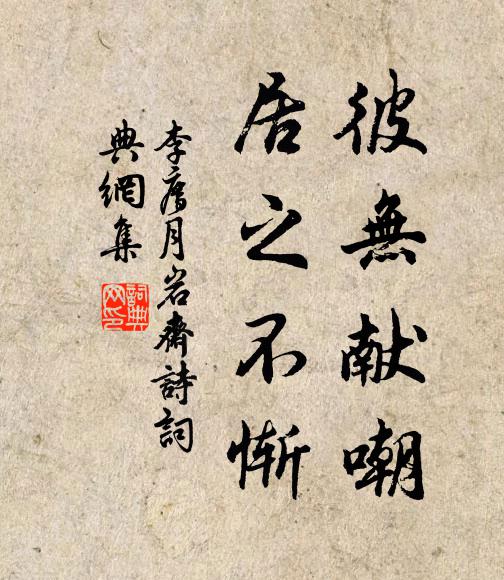 彼無献嘲
居之不慚
李廌月岩齋詩詞
典網集
詞典
网印